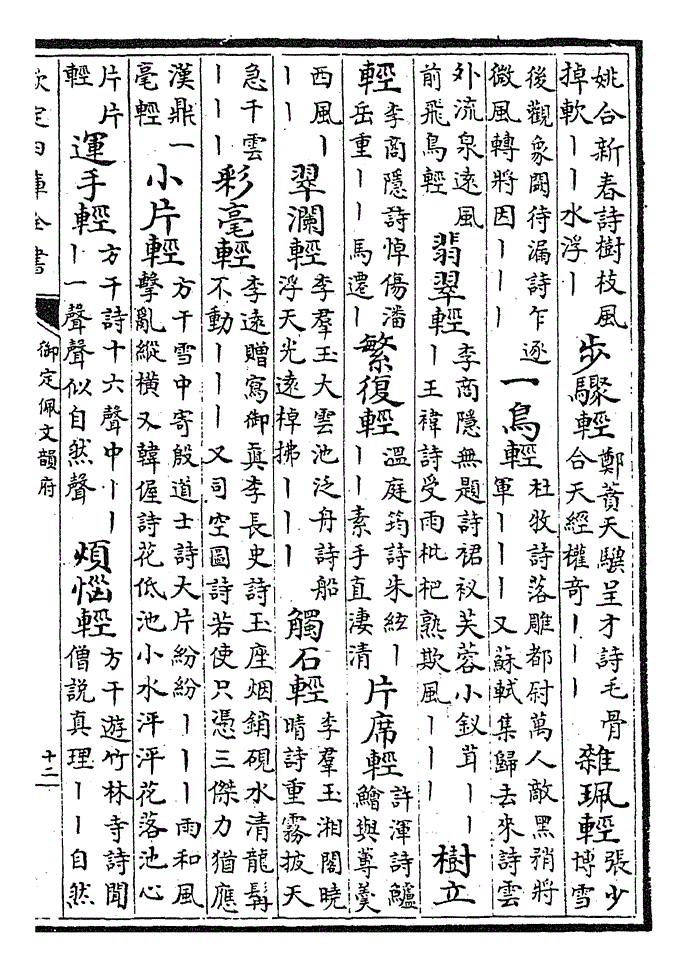 姚合新春詩樹枝風掉軟丨丨水浮丨 步驟輕 鄭蕡天驥呈才詩毛骨合天經權奇丨丨丨 雜珮輕 張少博雪
後觀象闕待漏詩乍逐微風轉將因丨丨丨 一鳥輕 杜牧詩落雕都尉萬人敵黑矟將軍丨丨丨又蘇軾集歸去來詩雲
外流泉遠風前飛鳥輕 翡翠輕 李商隱無題詩裙衩芙蓉小釵茸丨丨丨王禕詩受雨枇杷熟欺風丨丨丨 樹立
輕 李商隱詩悼傷潘岳重丨丨馬遷丨 繁復輕 溫庭筠詩朱絃丨丨丨素手直淒清 片席輕 許渾詩鱸鱠與蓴羹
西風丨丨丨 翠瀾輕 李羣玉大雲池泛舟詩船浮天光遠棹拂丨丨丨 觸石輕 李羣玉湘閣曉晴詩重霧披天
急千雲丨丨丨 彩毫輕 李遠贈寫御真李長史詩玉座烟銷硯水清龍髯不動丨丨丨又司空圖詩若使只憑三傑力猶應
漢鼎一毫輕 小片輕 方干雪中寄殷道士詩大片紛紛丨丨丨雨和風擊亂縱橫又韓偓詩花低池小水泙泙花落池心
片片輕 運手輕 方干詩十六聲中丨丨丨一聲聲似自然聲 煩惱輕 方干遊竹林寺詩聞僧説真理丨丨自然
欽定四庫全書 御定佩文韻府 十二